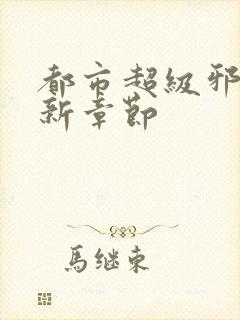 都市超级邪
新章节
馬继東